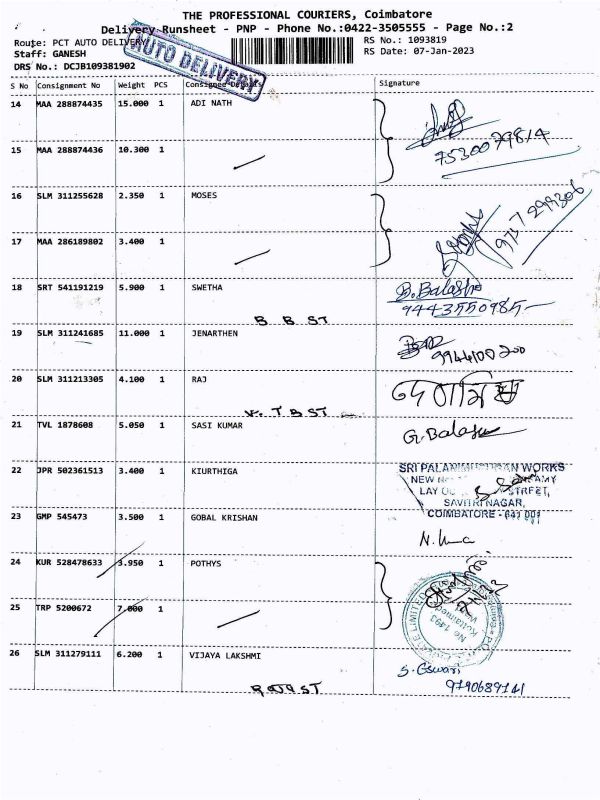 THE PROFESSIONAL COURIERS, Coimbatore
Delivery Runsheet - PNP - Phone No.:0422-3505555 - Page No.:2
Route: PCT AUTO DELIVERY
RS No.: 1093819
Staff: GANESH
RS Date: 07-Jan-2023
DRS No.: DCJB109381902
AUTO DELIVERY
S No Consignment No Weight PCS Consignee Details Signature
14 MAA 288874435 15.000 1 ADI NATH
7530079814
15 MAA 288874436 10.300 1
16 SLM 311255628 2.350 1 MOSES
9737299306
17 MAA 286189802 3.400 1
18 SRT 541191219 5.900 1 SWETHA B. Balasu
9443550985
B B ST
19 SLM 311241685 11.000 1 JENARTHEN
9944100200
20 SLM 311213305 4.100 1 RAJ
V. T B ST
21 TVL 1878608 5.050 1 SASI KUMAR G. Balasu
22 JPR 502361513 3.400 1 KIURTHIGA
SRI PALANI WORKS
NEW
LAY STREET,
SAVITRI NAGAR,
COIMBATORE - 641 001
23 GMP 545473 3.500 1 GOBAL KRISHAN
N. Uma
24 KUR 528478633 3.950 1 POTHYS
25 TRP 5200672 7.000 1
No 1493
26 SLM 311279111 6.200 1 VIJAYA LAKSHMI S. Eswari
9790689141